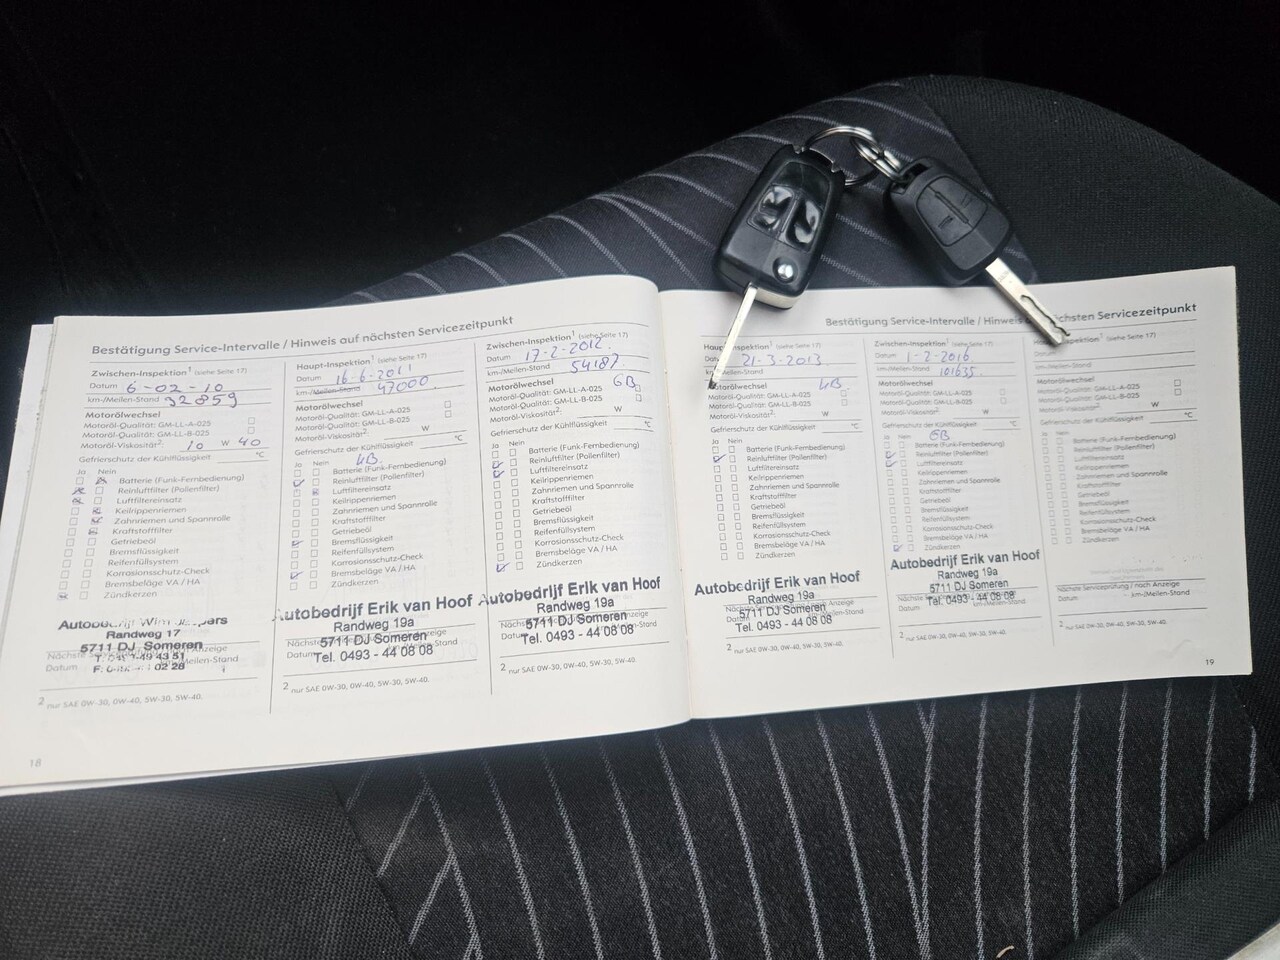 Bestätigung Service-Intervalle / Hinweis auf nächsten Servicezeitpunkt
Zwischen-Inspektion¹ (siehe Seite 17)
Datum 6-02-10
km-/Meilen-Stand 32859
Motorölwechsel
Motoröl-Qualität: GM-LL-A-025
Motoröl-Qualität: GM-LL-B-025
Motoröl-Viskosität²: 10 W 40
Gefrierschutz der Kühlflüssigkeit °C
Ja Nein
Batterie (Funk-Fernbedienung)
Reinluftfilter (Pollenfilter)
Luftfiltereinsatz
Keilrippenriemen
Zahnriemen und Spannrolle
Kraftstofffilter
Getriebeöl
Bremsflüssigkeit
Reifenfüllsystem
Korrosionsschutz-Check
Bremsbeläge VA / HA
Zündkerzen
Autobedrijf Wim
Randweg 17
5711 DJ Someren
Datum
2 nur SAE 0W-30, 0W-40, 5W-30, 5W-40.
18
Haupt-Inspektion¹ (siehe Seite 17)
Datum 16-6-2011
km-/Meilen-Stand 43000
Motorölwechsel
Motoröl-Qualität: GM-LL-A-025
Motoröl-Qualität: GM-LL-B-025
Motoröl-Viskosität²: W
Gefrierschutz der Kühlflüssigkeit °C
Ja Nein GB.
Batterie (Funk-Fernbedienung)
Reinluftfilter (Pollenfilter)
Luftfiltereinsatz
Keilrippenriemen
Zahnriemen und Spannrolle
Kraftstofffilter
Getriebeöl
Bremsflüssigkeit
Reifenfüllsystem
Korrosionsschutz-Check
Bremsbeläge VA / HA
Zündkerzen
Autobedrijf Erik van Hoof
Randweg 19a
5711 DJ Someren
Tel. 0493 - 44 08 08
2 nur SAE 0W-30, 0W-40, 5W-30, 5W-40.
Zwischen-Inspektion¹ (siehe Seite 17)
Datum 17-2-2012.
km-/Meilen-Stand 54187
Motorölwechsel GB
Motoröl-Qualität: GM-LL-A-025
Motoröl-Qualität: GM-LL-B-025
Motoröl-Viskosität²: W
Gefrierschutz der Kühlflüssigkeit °C
Ja Nein
Batterie (Funk-Fernbedienung)
Reinluftfilter (Pollenfilter)
Luftfiltereinsatz
Keilrippenriemen
Zahnriemen und Spannrolle
Kraftstofffilter
Getriebeöl
Bremsflüssigkeit
Reifenfüllsystem
Korrosionsschutz-Check
Bremsbeläge VA / HA
Zündkerzen
Autobedrijf Erik van Hoof
Randweg 19a
5711 DJ Someren
Tel. 0493 - 44 08 08
2 nur SAE 0W-30, 0W-40, 5W-30, 5W-40.
Bestätigung Service-Intervalle / Hinweis nächsten Servicezeitpunkt
Haupt-Inspektion¹ (siehe Seite 17)
21-3-2013
km-/Meilen-Stand
Motorölwechsel GB.
Motoröl-Qualität: GM-LL-A-025
Motoröl-Qualität: GM-LL-B-025
Motoröl-Viskosität²: W
Gefrierschutz der Kühlflüssigkeit °C
Ja Nein
Batterie (Funk-Fernbedienung)
Reinluftfilter (Pollenfilter)
Luftfiltereinsatz
Keilrippenriemen
Zahnriemen und Spannrolle
Kraftstofffilter
Getriebeöl
Bremsflüssigkeit
Reifenfüllsystem
Korrosionsschutz-Check
Bremsbeläge VA / HA
Zündkerzen
Autobedrijf Erik van Hoof
Randweg 19a
5711 DJ Someren
Tel. 0493 - 44 08 08
2 nur SAE 0W-30, 0W-40, 5W-30, 5W-40.
Zwischen-Inspektion¹ (siehe Seite 17)
Datum 1-2-2016
km-/Meilen-Stand 101635
Motorölwechsel
Motoröl-Qualität: GM-LL-A-025
Motoröl-Qualität: GM-LL-B-025
Motoröl-Viskosität²: W
Gefrierschutz der Kühlflüssigkeit °C
Ja Nein GB
Batterie (Funk-Fernbedienung)
Reinluftfilter (Pollenfilter)
Luftfiltereinsatz
Keilrippenriemen
Zahnriemen und Spannrolle
Kraftstofffilter
Getriebeöl
Bremsflüssigkeit
Reifenfüllsystem
Korrosionsschutz-Check
Bremsbeläge VA / HA
Zündkerzen
Autobedrijf Erik van Hoof
Randweg 19a
5711 DJ Someren
Tel. 0493 - 44 08 08
2 nur SAE 0W-30, 0W-40, 5W-30, 5W-40.
Haupt-Inspektion¹ (siehe Seite 17)
Datum
km-/Meilen-Stand
Motorölwechsel
Motoröl-Qualität: GM-LL-A-025
Motoröl-Qualität: GM-LL-B-025
Motoröl-Viskosität²: W
Gefrierschutz der Kühlflüssigkeit °C
Ja Nein
Batterie (Funk-Fernbedienung)
Reinluftfilter (Pollenfilter)
Luftfiltereinsatz
Keilrippenriemen
Zahnriemen und Spannrolle
Kraftstofffilter
Getriebeöl
Bremsflüssigkeit
Reifenfüllsystem
Korrosionsschutz-Check
Bremsbeläge VA / HA
Zündkerzen
Nächste Serviceprüfung / nach Anzeige
Datum km-/Meilen-Stand
2 nur SAE 0W-30, 0W-40, 5W-30, 5W-40.
19